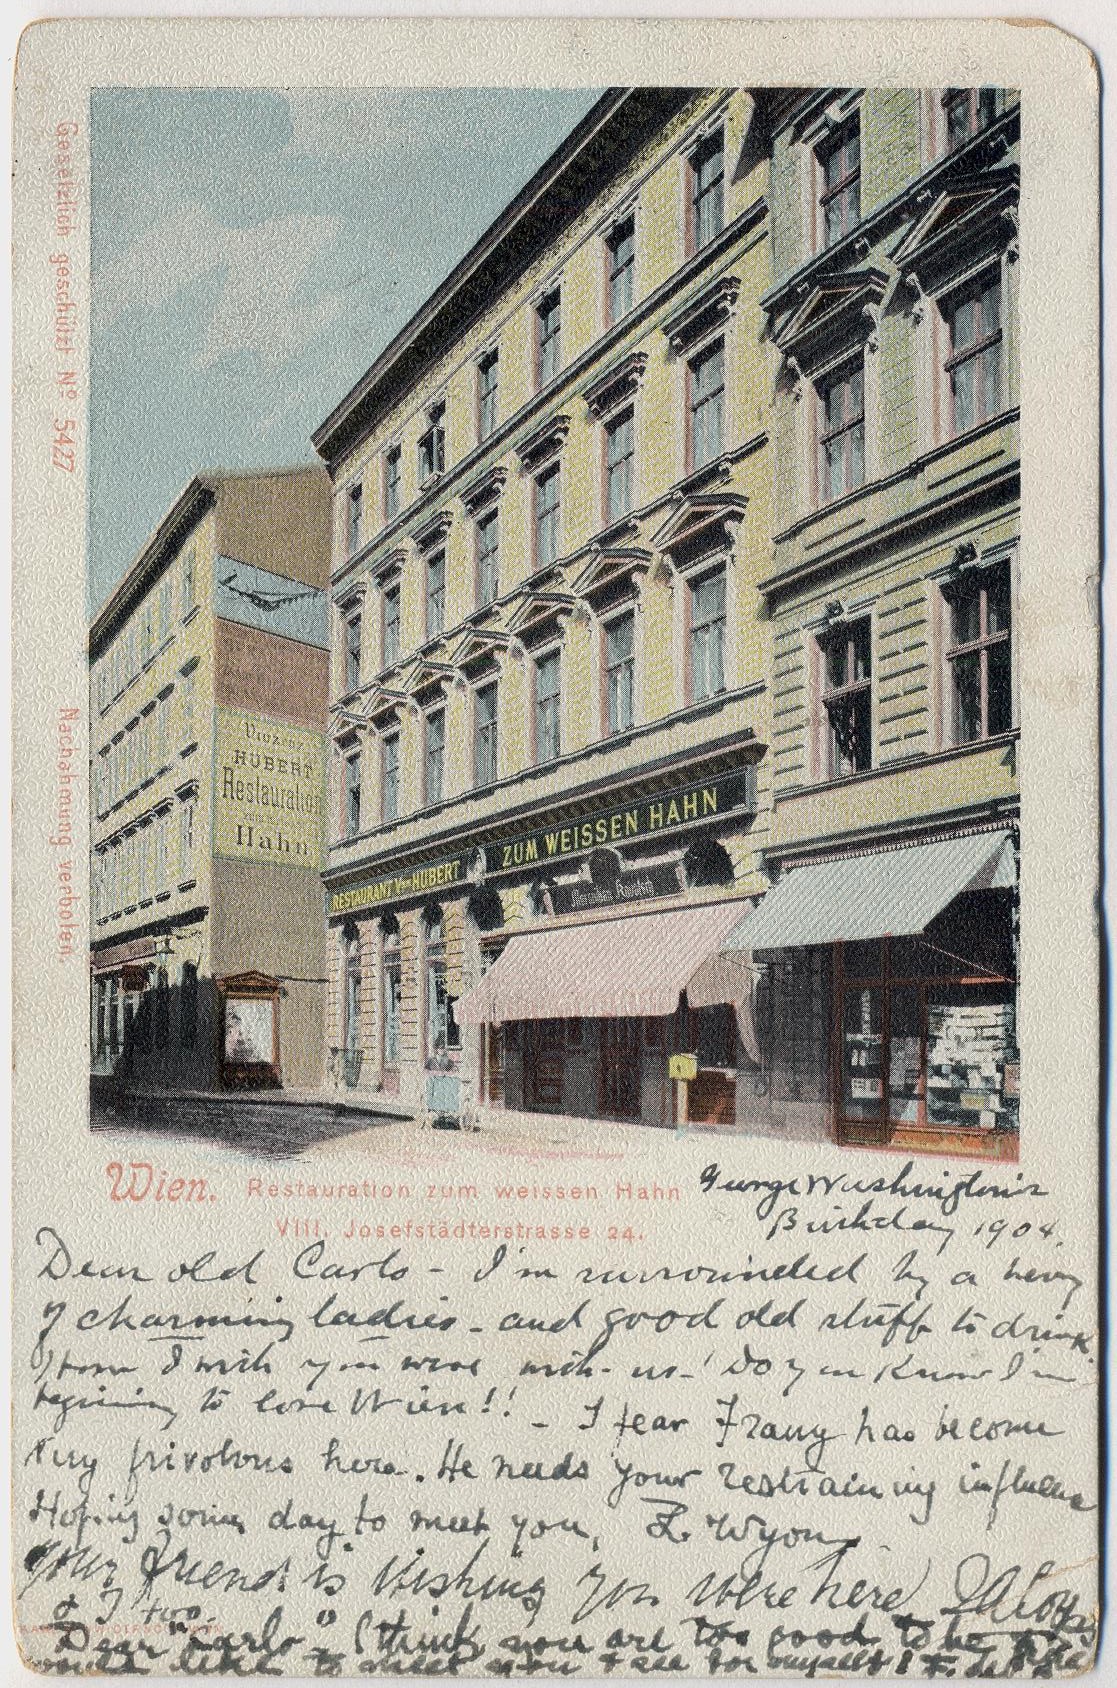 Gesetzlich geschützt No 5427
Nachahmung verboten.
Vinzenz
HUBERT
Restauration
Hahn
RESTAURANT Vinz. HUBERT
ZUM WEISSEN HAHN
Wien. Restauration zum weissen Hahn
VIII. Josefstädterstrasse 24.
George Washington's
Birthday 1904.
Dear old Carlo - I'm surrounded by a bevy
of charming ladies - and good old stuff to drink
I wish you were with us! Do you know I'm
begining to love Wien!! - I fear Franz has become
very frivolous here. He needs your restraining influence
Hoping some day to meet you, L. Wyon
Your friend is wishing you were here
& I too.
Dear "Carlo" I think you are too good to be
would like to meet you & see for myself!